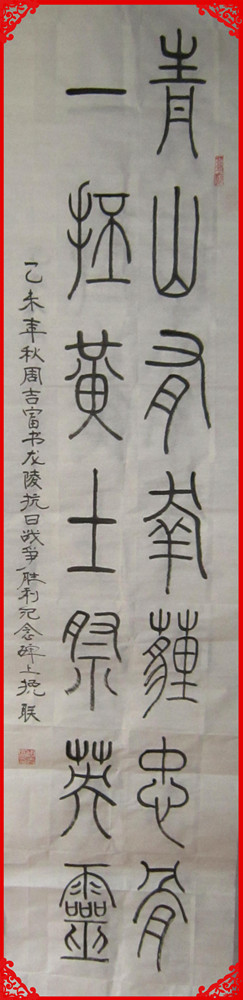 青山有幸薶忠骨
一抔黄土祭英靈
乙未年秋周吉富书龙陵抗日战争胜利纪念碑上挽联